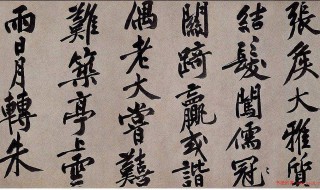 張侯大雅質
結髮闖儒冠
關踦贏或諧
偶老大嘗囏
難築亭上雲
雨日月轉朱